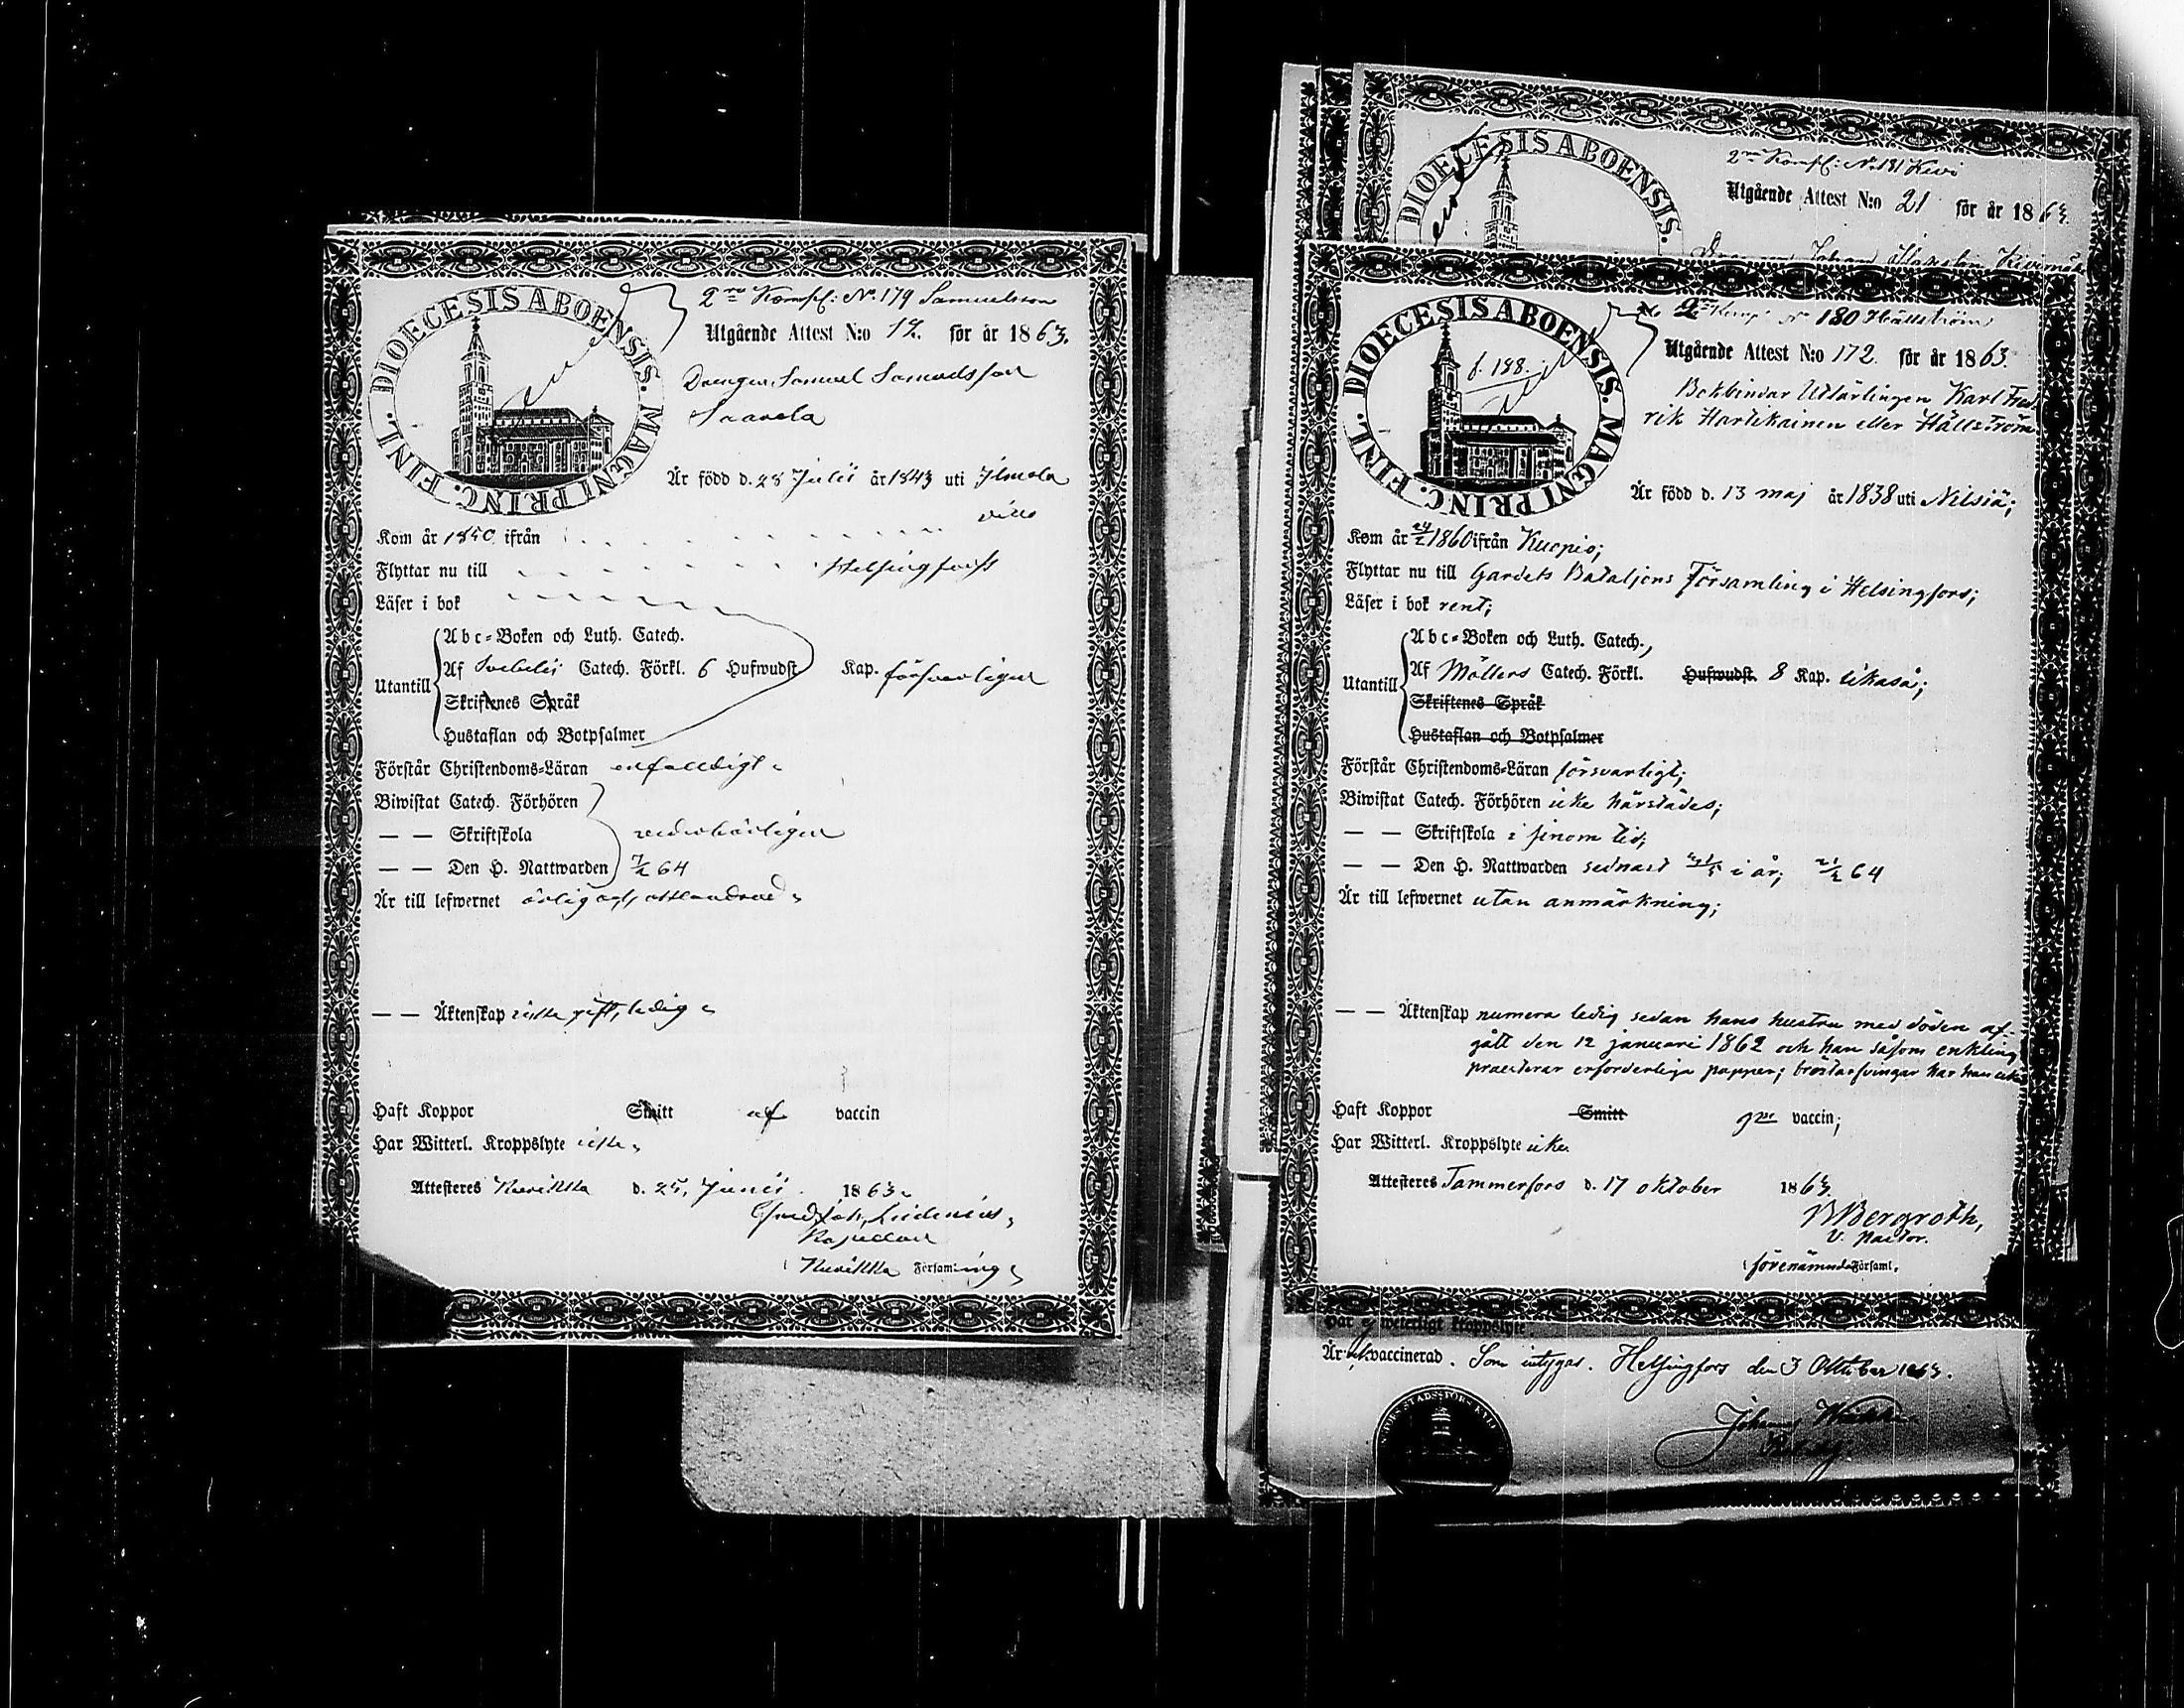 DIOECESIS ABOENSIS. MAGNI PRINC. FINL.
2re Kompl: No 179 Samuelsson
Utgående Attest N:o 17. för år 1863.
Drengen Samuel Samuelsson
Saarela
Är född d. 28 Julii år 1843 uti Ilmola
Kom år 1850 ifrån
Flyttar nu till Helsingfors
Läser i bok
Utantill
Abc-Boken och Luth. Catech.
Af Svebelii Catech. Förkl. 6 Hufwudst. Kap. försvarligen
Skriftenes Språk
Hustaflan och Botpsalmer
Förstår Christendoms-Läran enfaldigt
Biwistat Catech. Förhören
— — Skriftskola vederbörligen
— — Den H. Nattwarden 7/2 64
Är till lefwernet ärlig och
— — Äktenskap icke gift, ledig
Haft Koppor Smitt af vaccin
Har Witterl. Kroppslyte icke
Attesteres Kurikka d. 25, Junii 1863.
Kapellan
i Kurikka Församling
DIOECESIS ABOENSIS.
2re Kompl: No 181 Kivi
Utgående Attest N:o 21 för år 1863.
Johan
DIOECESIS ABOENSIS. MAGNI PRINC. FINL.
f. 188.
2re Komp No 180 Hällström
Utgående Attest N:o 172. för år 1863.
Bokbindar Utlärlingen Karl Fred
rik Hartikainen eller Hällström
Är född d. 13 maj år 1838 uti Nilsiä;
Kom år 24/2 1860 ifrån Kuopio;
Flyttar nu till Gardets Bataljons Församling i Helsingfors;
Läser i bok rent;
Utantill
Abc-Boken och Luth. Catech.,
Af Möllers Catech. Förkl. Hufwudst. 8 Kap. likaså;
Skriftenes Språk
Hustaflan och Botpsalmer
Förstår Christendoms-Läran försvarligt;
Biwistat Catech. Förhören icke härstädes;
— — Skriftskola i sinom tid;
— — Den H. Nattwarden sednast i år; 64
Är till lefwernet utan anmärkning;
— — Äktenskap numera ledig sedan hans hustru med döden af-
gått den 12 januari 1862 och han såsom enkling
praesterar erforderliga papper; bröstarfvingar har han icke
Haft Koppor Smitt vaccin;
Har Witterl. Kroppslyte icke.
Attesteres Tammerfors d. 17 oktober 1863.
Bergroth,
v. Pastor.
i förenämnda Församl.
Har ej weterligt kroppslyte
Är vaccinerad. Som intygas. Helsingfors den 3 Oktober 1863.
Johannes